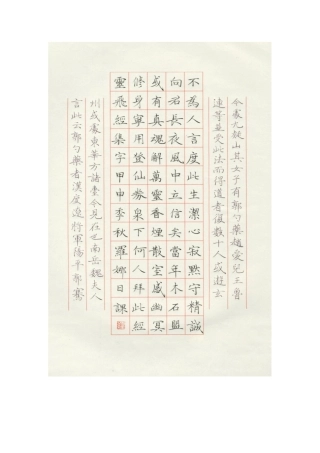 今處九疑山其女子有郭勺藥趙愛兒王魯
連等並受此法而得道者復數十人或遊玄
不為人言度此生潔心寂默守精誠
向君長夜風中立信矣當年木石盟
或有真魂解萬靈香煙散室感幽冥
修身寧用登仙藥泉下何人拜此經
靈飛經集字甲申季秋羅娜日課
州或處東華方諸臺今見在也南岳魏夫人
言此云郭勺藥者漢度遼將軍陽平郭騫